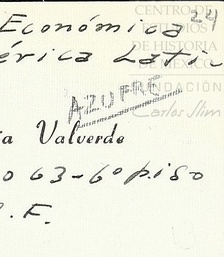 24
Económica
érica Latin
AZUFRE
ía Valverde
o 63-6º piso
. F.
CENTRO DE
ESTUDIOS
DE HISTORIA
DE MÉXICO
FUNDACIÓN
Carlos Slim